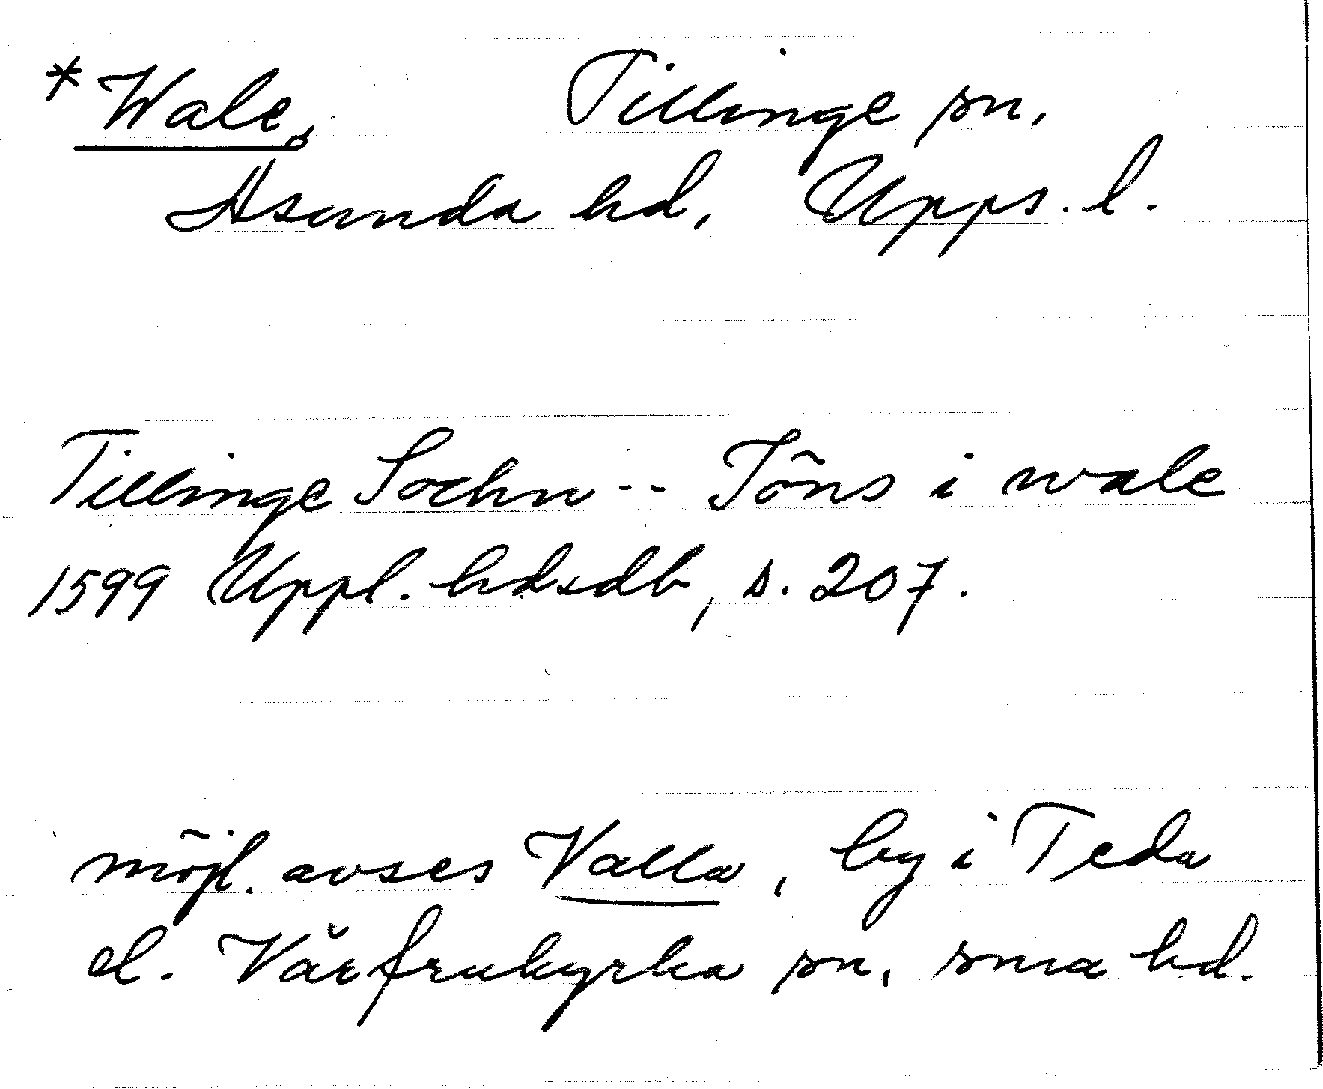 *Wale, Tillinge sn,
Asunda hd, Upps. l.
Tillinge Sochn -- Jöns i wale
1599 Uppl. hdsdb, s. 207.
möjl. avses Valla, by i Teda
el. Vårfrukyrka sn, sma hd.